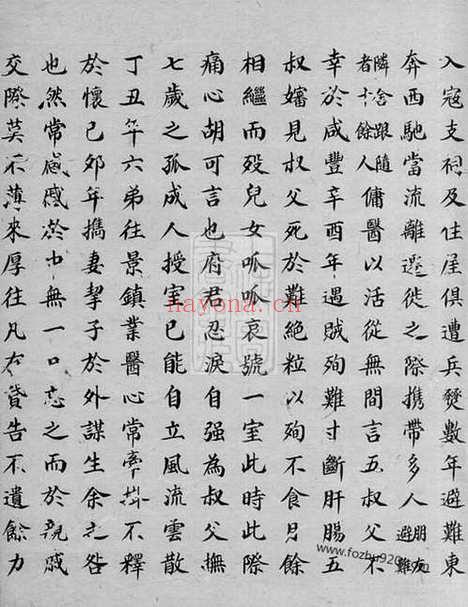 入寇支祠及住屋俱遭兵燹數年避難東
奔西馳當流離遷徙之際携帶多人朋友避難
隣舍跟隨者十餘人傭醫以活從無間言五叔父不
幸於咸豐辛酉年遇賊殉難寸斷肝腸五
叔嬸見叔父死於難絕粒以殉不食月餘
相繼而歿兒女呱呱哀號一室此時此際
痛心胡可言也府君忍淚自强為叔父撫
七歲之孤成人授室已能自立風流雲散
丁丑年六弟往景鎮業醫心常牽掛不釋
於懷己卯年携妻挈子於外謀生余之咎
也然常慼慼於中無一口忘之而於親戚
交際莫不薄來厚往凡有貸告不遺餘力
hayona.cn
www.fozhu920